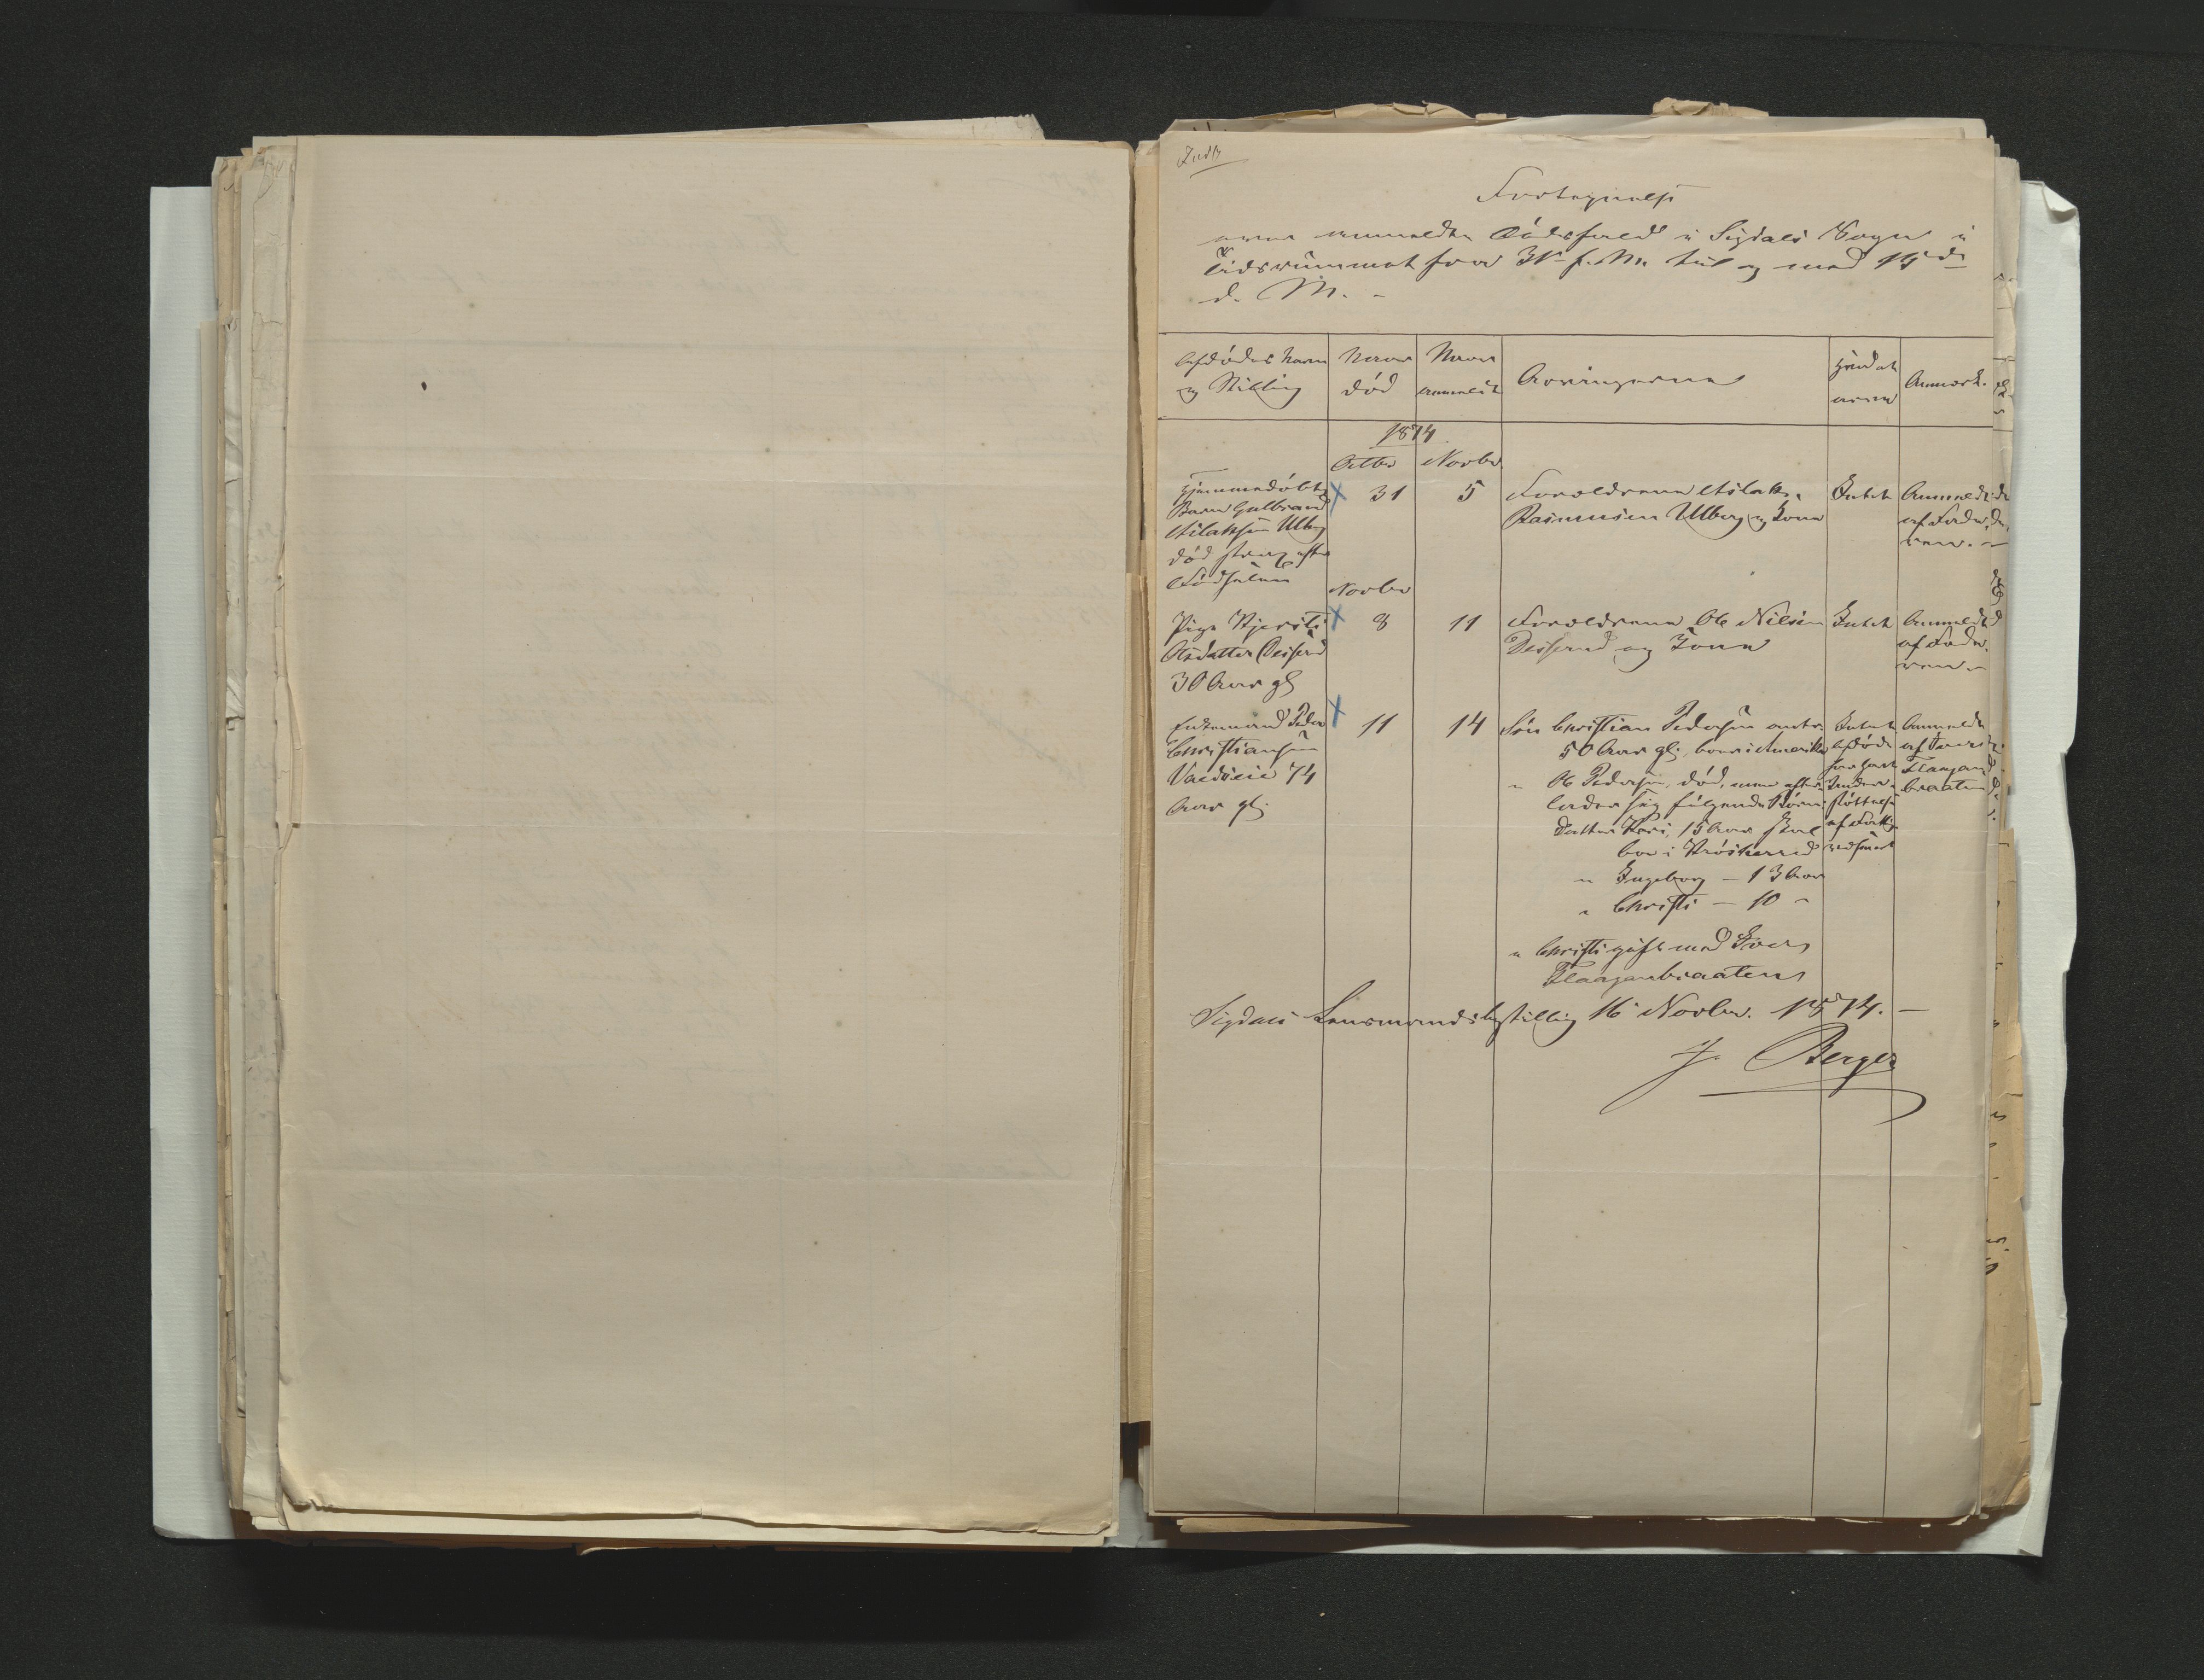 Fortegnelse
over anmeldte Dödsfald i Sigdals Sogn i
Tidsrummet fra 31 f. M. til og med 14de
d. M. -
Afdödes Navn og Stilling
Naar död
Naar anmeldt
Arvingerne
Hvad at arve
Anmærk.
1874
Octbr Novbr
Hjemmedöbt
Barn Gulbrand
Aslaksen Ulberg
död strax efter
Födselen
31
5
Forældrene Aslak
Rasmusen Ulberg og Kone
Intet
Anmeldt
af Fade-
ren. -
Novbr
Pige Kjersti
Olsdatter Deiserud
30 Aar gl
8
11
Forældrene Ole Nilsen
Deiserud og Kone
Intet
Anmeldt
af Fade-
ren -
Enkemand Peder
Christiansen
74
Aar gl.
11
14
Sön Christian Pedersen omtr.
50 Aar gl. boer i Amerika
" Ole Pedersen, död, men efter-
lader sig fölgende Börn:
Datter Kari, 15 Aar skal
bo i Krösherred
" Ingeborg - 13 Aar
" Christi - 10 "
" Christi gift med Iver
Flaaganbraaten
Intet
Afdöde
har havt
Under-
stöttelse
af Fattig-
væsenet
Anmeldt
af Iver
Flaagan
braaten
Sigdals Lensmandsbestilling 16 Novbr. 1874. -
J. Berger